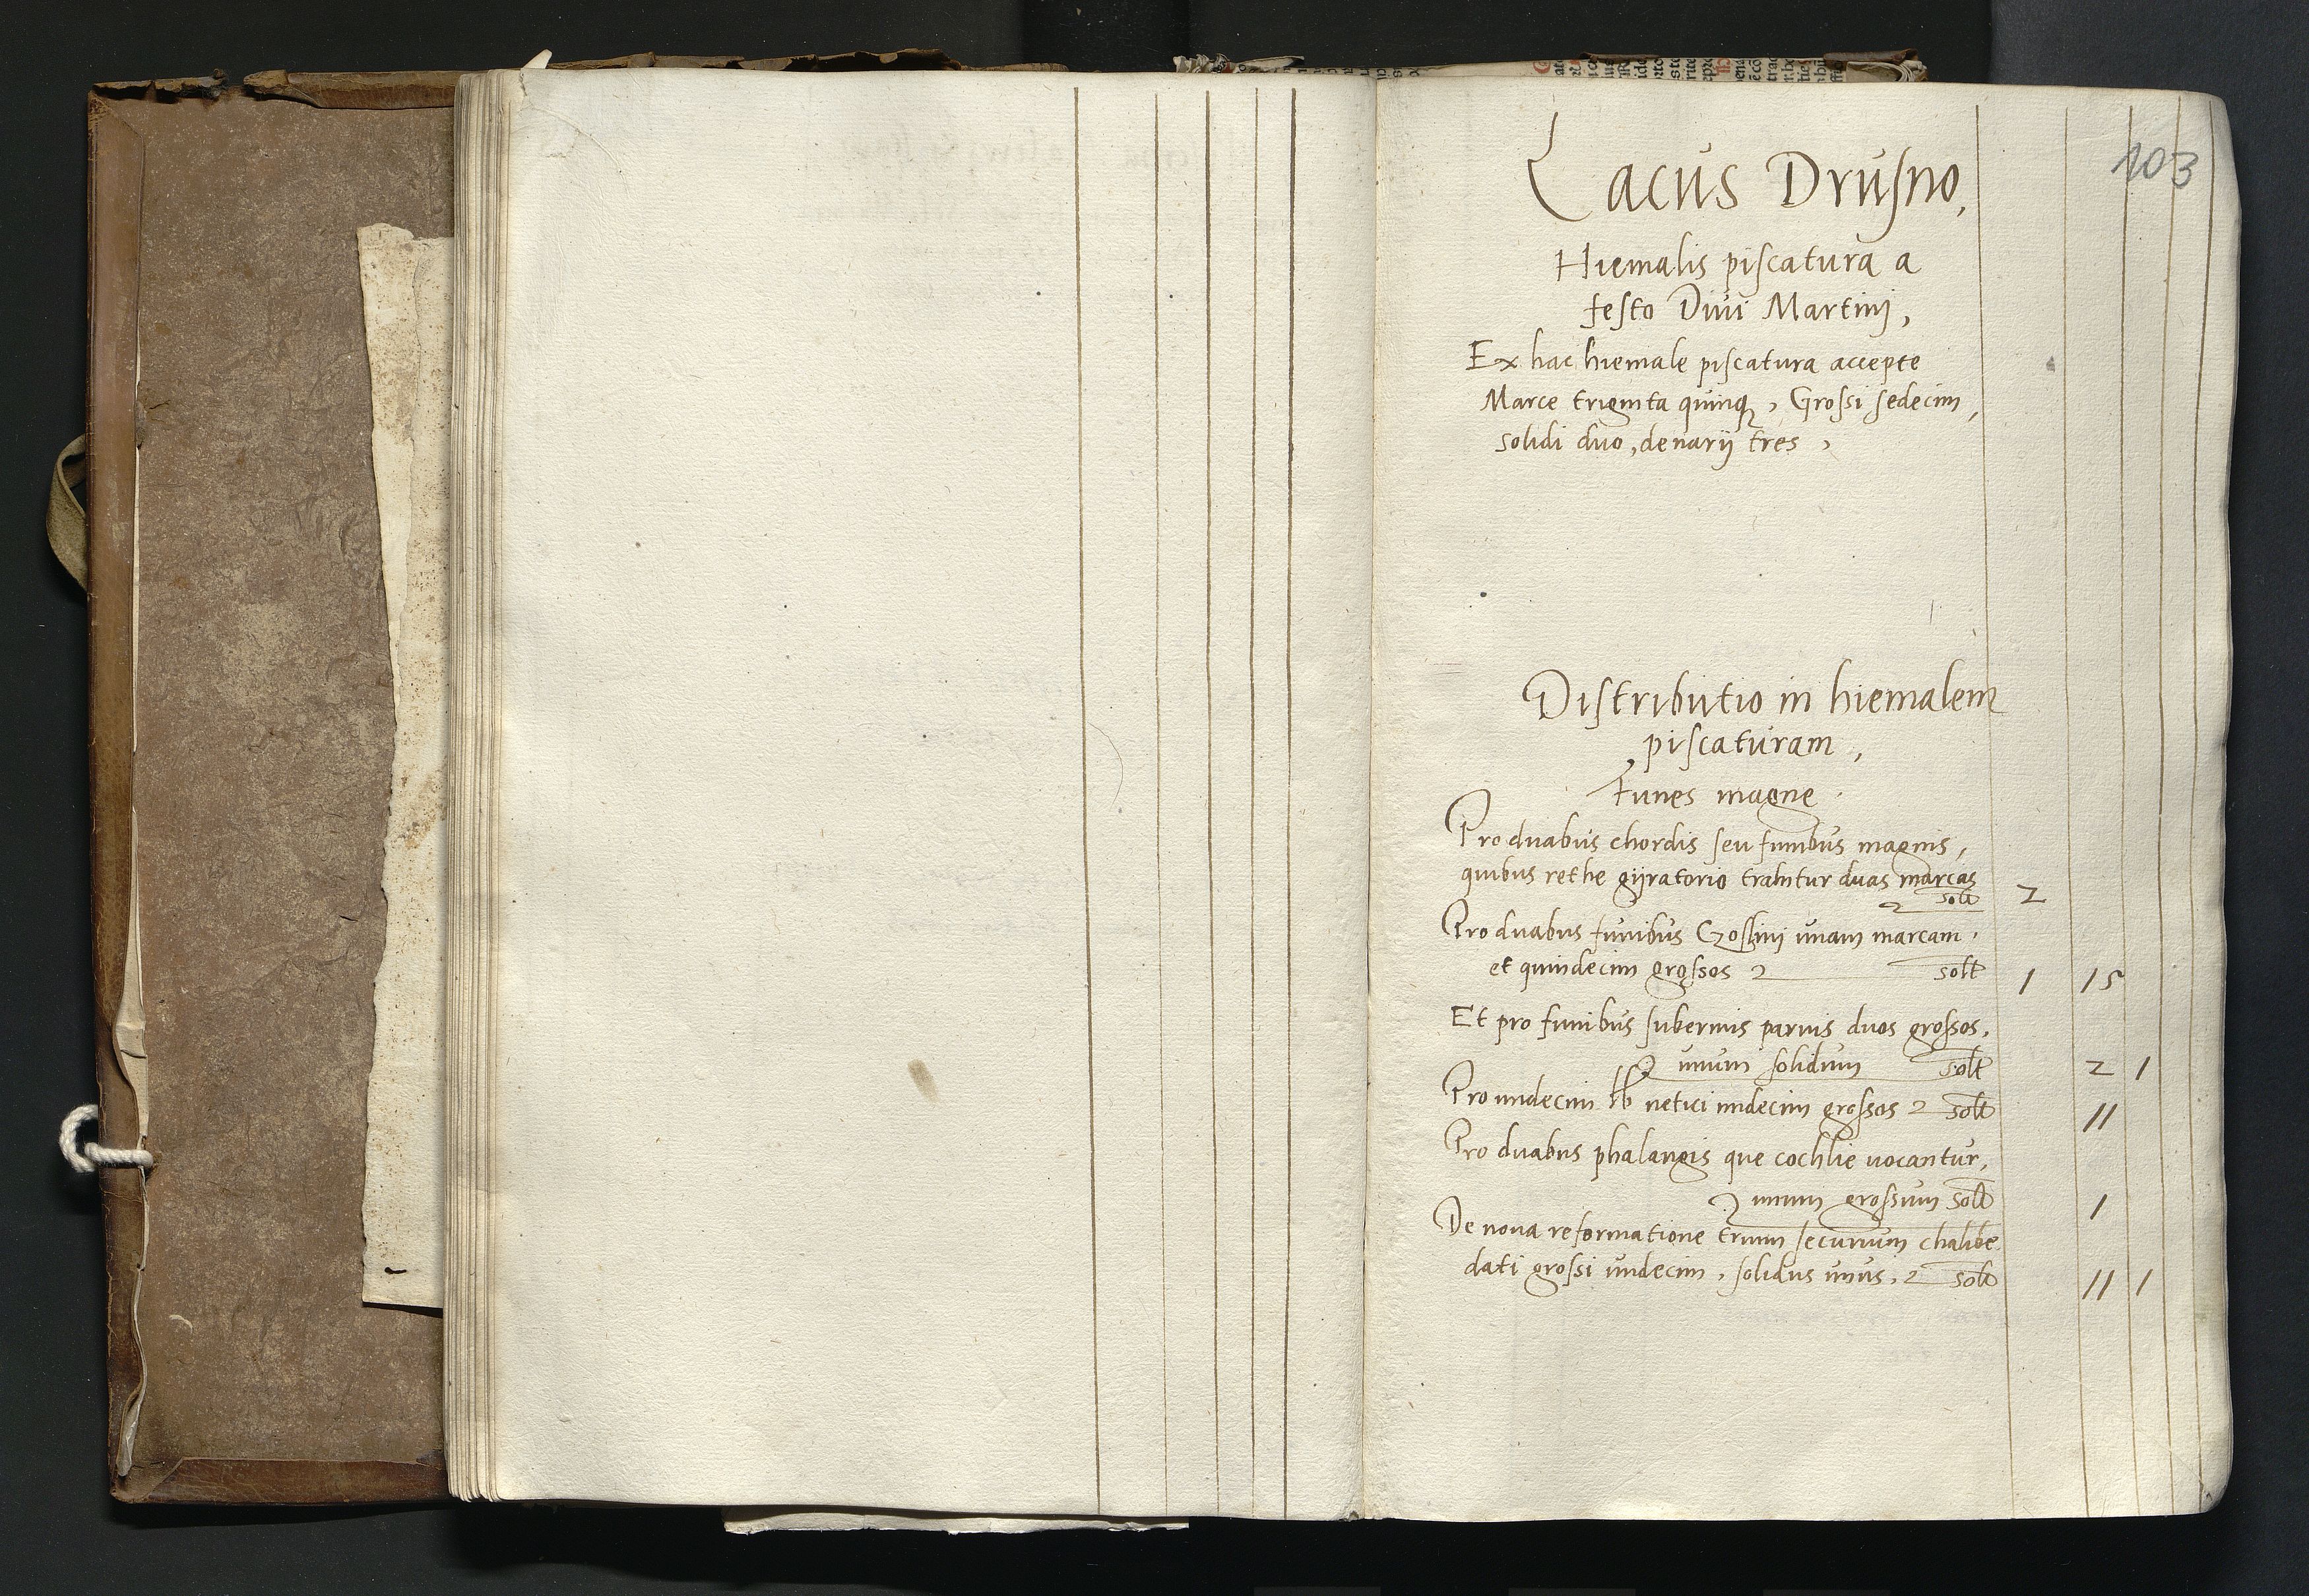 103
Lacus Drusno,
Hiemalis piscatura a
festo Diui Martinj,
Ex hac hiemale piscatura accepte
Marce triginta quinq, Grossi sedecim,
solidi duo, denarij tres,
Distributio in hiemalem
piscaturam,
Funes magne.
Pro duabus chordis seu funibus magnis,
quibus rethe gijratorio trahitur duas marcas
solt 2
Pro duabus funibus Gostinj unam marcam,
et quindecim grossos solt 1 15
Et pro funibus suberinis paruis duos grossos,
unum solidum solt 2 1
Pro undecim lb netici undecim grossos solt 11
Pro duabus phalangis que cochlie uocantur,
unum grossum solt 1
De noua reformatione trium securium chalibe
dati grossi undecim, solidus unus, solt 11 1